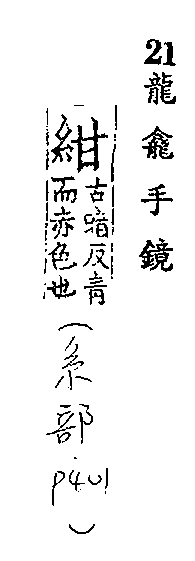 21龍龕手鏡
紺古暗反青
而亦色也
(糸部
p401)